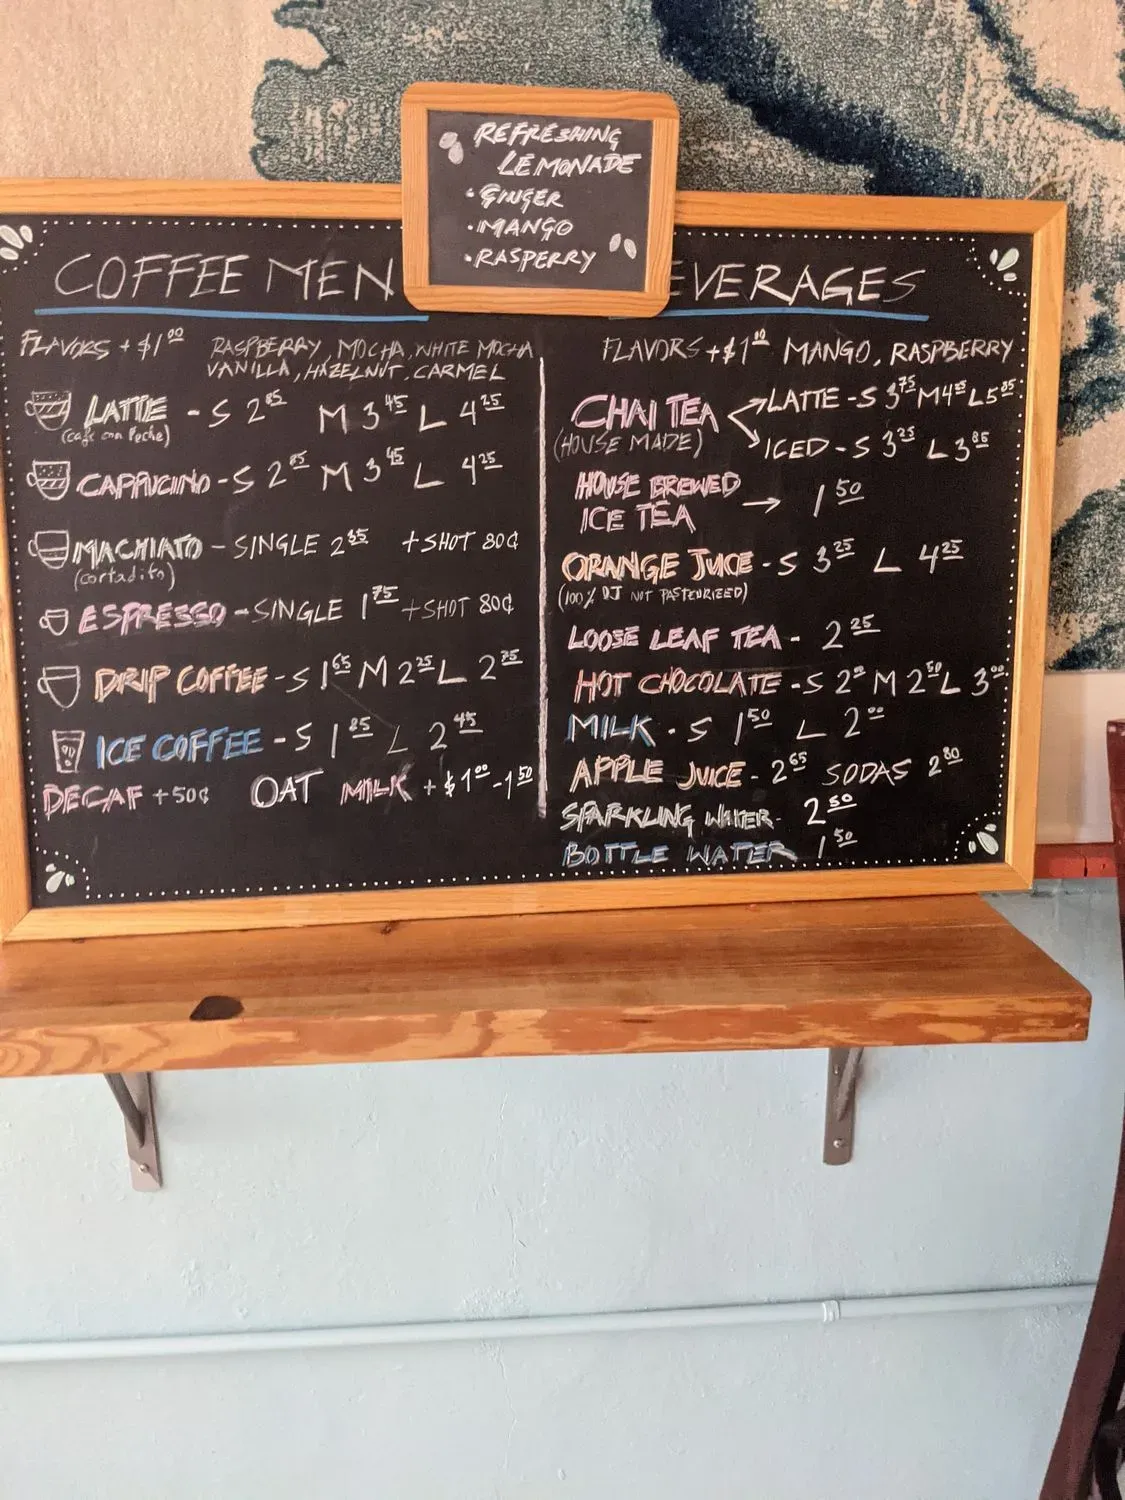 REFRESHING
LEMONADE
• GINGER
• MANGO
• RASPERRY
COFFEE MEN
FLAVORS + $1.00 RASPBERRY, MOCHA, WHITE MOCHA
VANILLA, HAZELNUT, CARMEL
LATTE - S 2.85 M 3.45 L 4.25
(cafe con leche)
CAPPUCINO - S 2.85 M 3.45 L 4.25
MACHIATO - SINGLE 2.35 + SHOT 80¢
(cortadito)
ESPRESSO - SINGLE 1.75 + SHOT 80¢
DRIP COFFEE - S 1.65 M 2.25 L 2.75
ICE COFFEE - S 1.85 L 2.45
DECAF + 50¢ OAT MILK + $1.00 - 1.50
EVERAGES
FLAVORS + $1.00 MANGO, RASPBERRY
CHAI TEA LATTE - S 3.75 M 4.85 L 5.85
(HOUSE MADE) ICED - S 3.25 L 3.85
HOUSE BREWED
ICE TEA → 1.50
ORANGE JUICE - S 3.25 L 4.25
(100% OJ NOT PASTEURIZED)
LOOSE LEAF TEA - 2.25
HOT CHOCOLATE - S 2 M 2.50 L 3.00
MILK - S 1.50 L 2.00
APPLE JUICE - 2.65 SODAS 2.80
SPARKLING WATER - 2.50
BOTTLE WATER 1.50